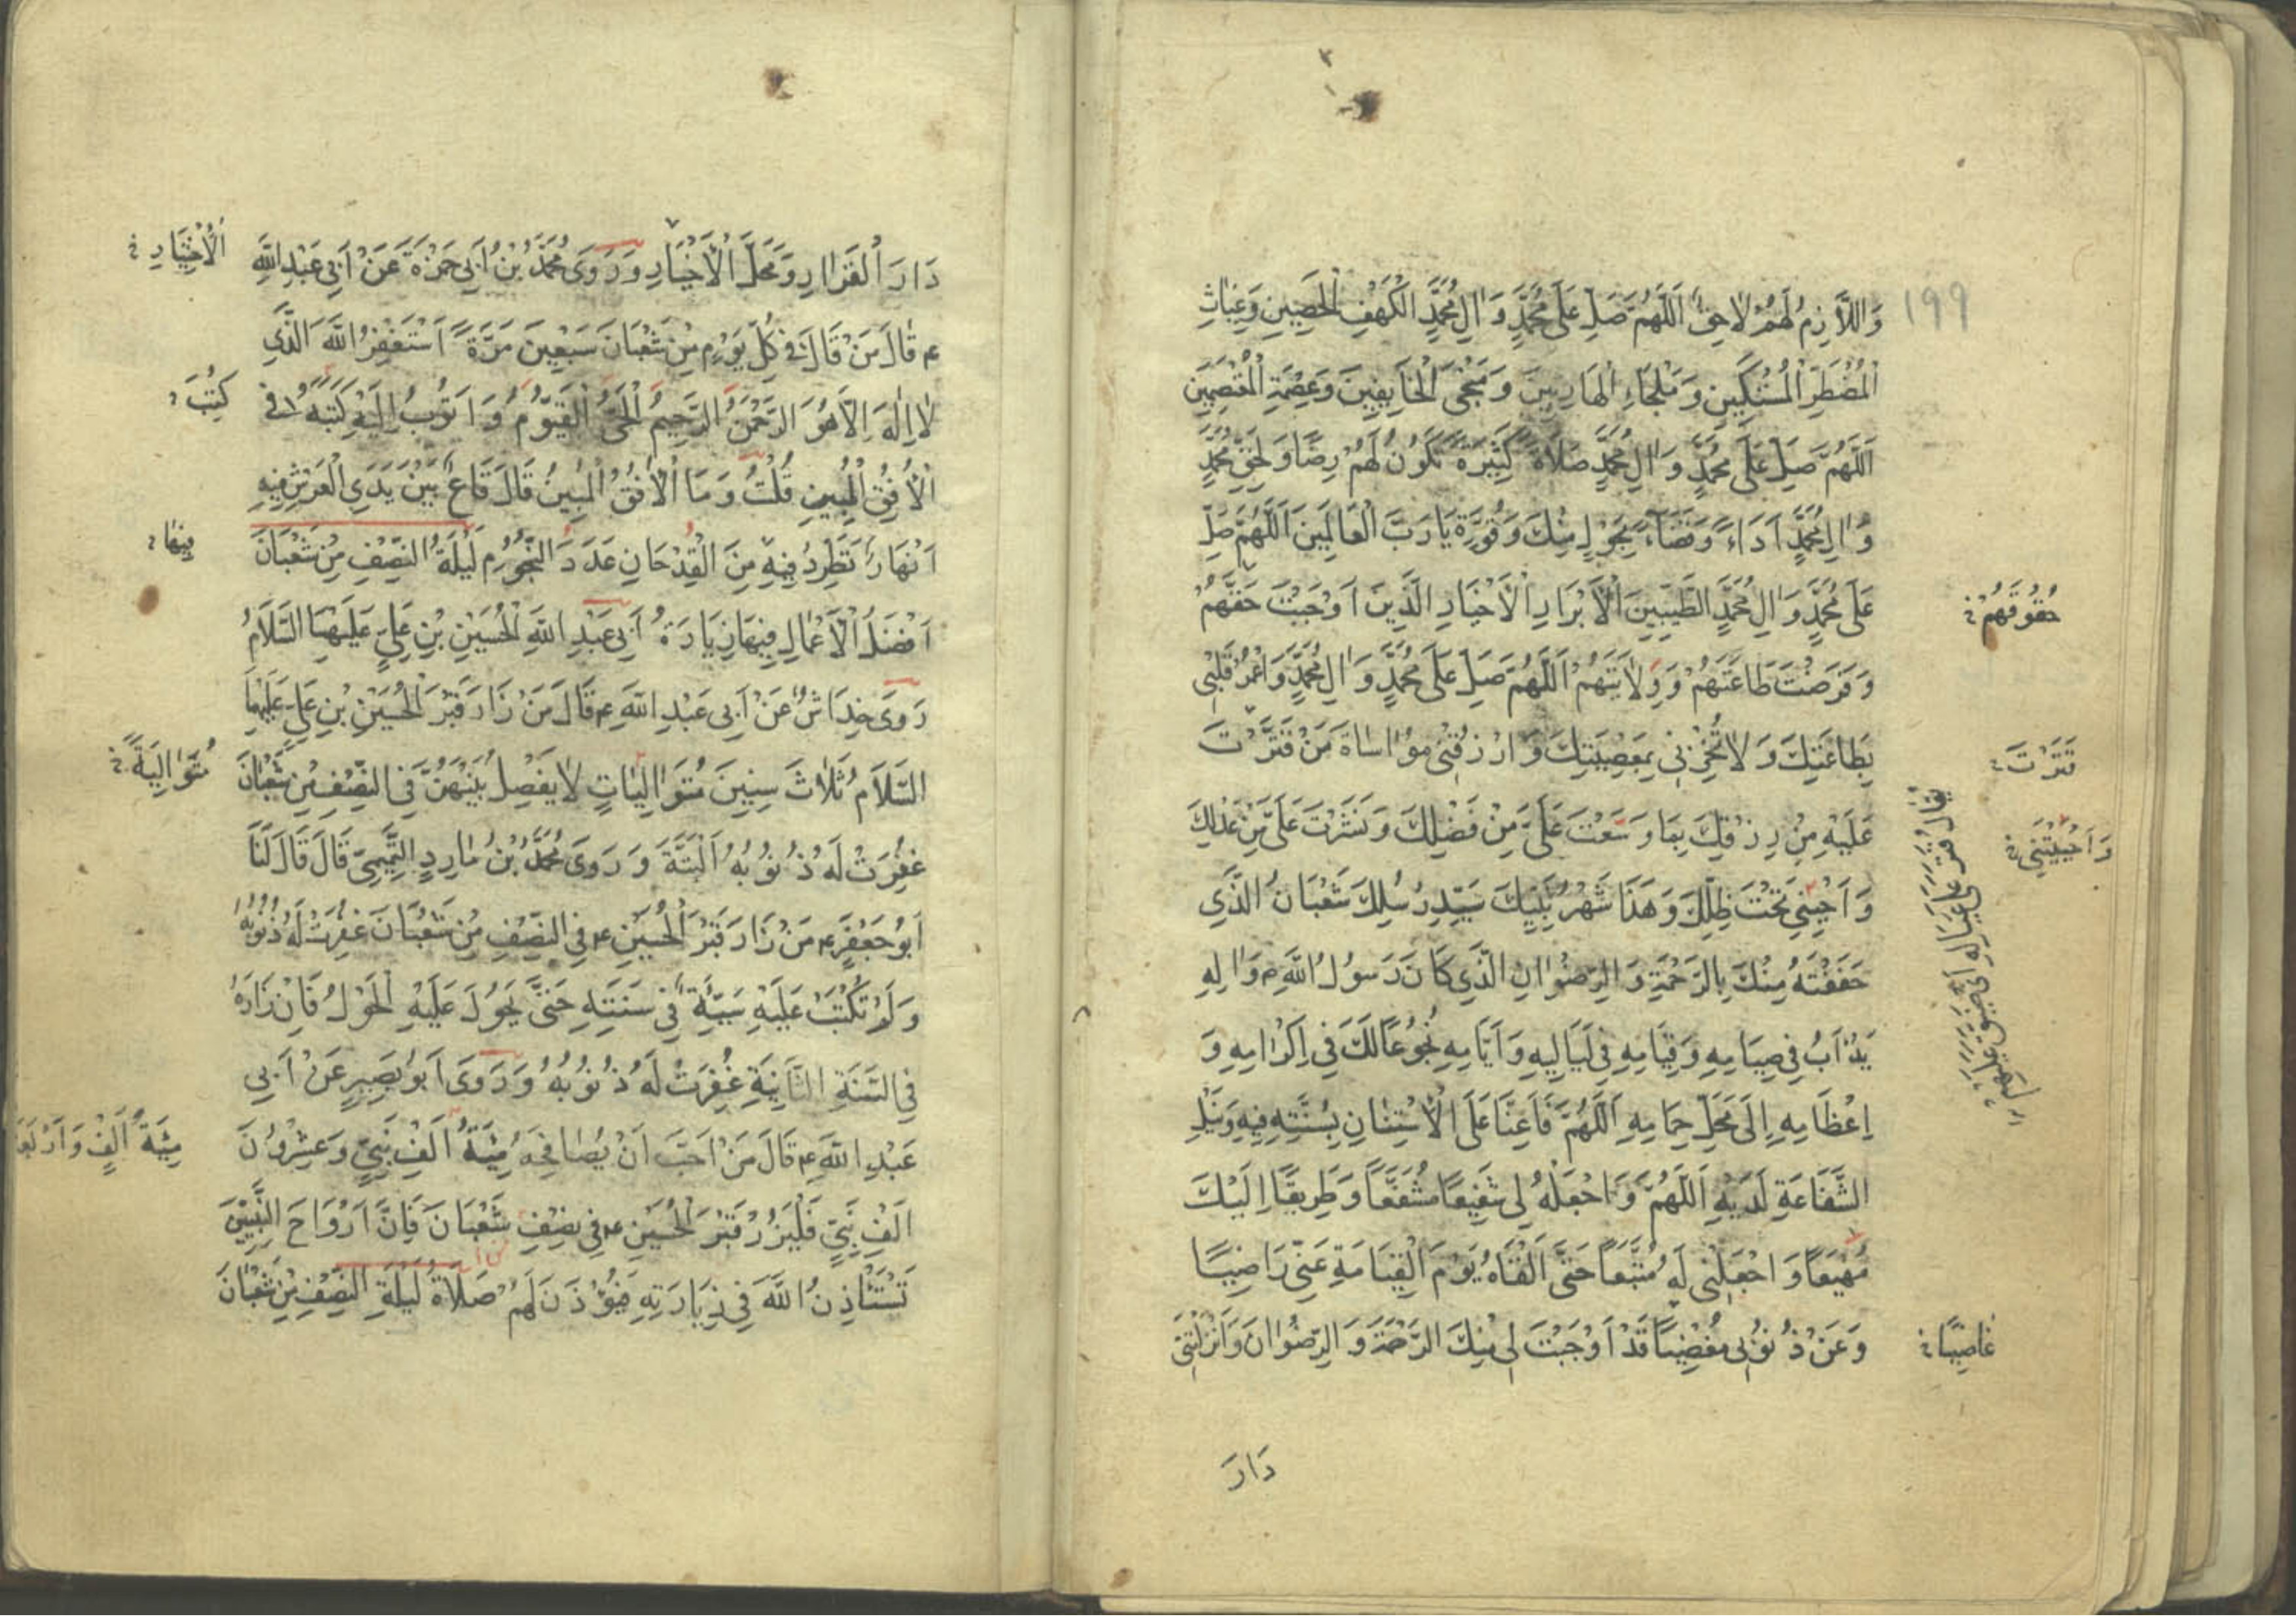 ١٩٩
وَاللَّازِمُ لَهُمْ لَاحِقٌ اَللّٰهُمَّ صَلِّ عَلَى مُحَمَّدٍ وَاٰلِ مُحَمَّدٍ الْكَهْفِ الْحَصِينِ وَغِيَاثِ
الْمُضْطَرِّ الْمُسْتَكِينِ وَمَلْجَاءِ الْهَارِبِينَ وَمَنْجَى الْخَايِفِينَ وَعِصْمَةِ الْمُعْتَصِمِينَ
اَللّٰهُمَّ صَلِّ عَلَى مُحَمَّدٍ وَاٰلِ مُحَمَّدٍ صَلَاةً كَثِيرَةً تَكُونُ لَهُمْ رِضًا وَلِحَقِّ مُحَمَّدٍ
وَاٰلِ مُحَمَّدٍ اَدَاءً وَقَضَاءً بِحَوْلٍ مِنْكَ وَقُوَّةٍ يَا رَبَّ الْعَالَمِينَ اَللّٰهُمَّ صَلِّ
عَلَى مُحَمَّدٍ وَاٰلِ مُحَمَّدٍ الطَّيِّبِينَ الْاَبْرَارِ الْاَخْيَارِ الَّذِينَ اَوْجَبْتَ حَقَّهُمْ
حُقُوقَهُمْ
وَفَرَضْتَ طَاعَتَهُمْ وَوِلَايَتَهُمْ اَللّٰهُمَّ صَلِّ عَلَى مُحَمَّدٍ وَاٰلِ مُحَمَّدٍ وَاعْمُرْ قَلْبِى
بِطَاعَتِكَ وَلَا تُخْزِنِى بِمَعْصِيَتِكَ وَارْزُقْنِى مُوَاسَاةَ مَنْ قَتَّرْتَ
قَتَرْتَ
عَلَيْهِ مِنْ رِزْقِكَ بِمَا وَسَّعْتَ عَلَىَّ مِنْ فَضْلِكَ وَنَشَرْتَ عَلَىَّ مِنْ عَدْلِكَ
وَاَحْيَيْتَنِى
وَاَحْيِنِى تَحْتَ ظِلِّكَ وَهَذَا شَهْرُ نَبِيِّكَ سَيِّدِ رُسُلِكَ شَعْبَانُ الَّذِى
حَفَفْتَهُ مِنْكَ بِالرَّحْمَةِ وَالرِّضْوَانِ الَّذِى كَانَ رَسُولُ اللّٰهِ ص وَاٰلِهِ
يَدْاَبُ فِى صِيَامِهِ وَقِيَامِهِ فِى لَيَالِيهِ وَاَيَّامِهِ بُخُوعًا لَكَ فِى اِكْرَامِهِ وَ
اِعْظَامِهِ اِلَى مَحَلِّ حِمَامِهِ اَللّٰهُمَّ فَاَعِنَّا عَلَى الْاِسْتِنَانِ بِسُنَّتِهِ فِيهِ وَنَيْلِ
الشَّفَاعَةِ لَدَيْهِ اَللّٰهُمَّ وَاجْعَلْهُ لِى شَفِيعًا مُشَفَّعًا وَطَرِيقًا اِلَيْكَ
مَهْيَعًا وَاجْعَلْنِى لَهُ مُتَّبِعًا حَتَّى اَلْقَاهُ يَوْمَ الْقِيَامَةِ عَنِّى رَاضِيًا
وَعَنْ ذُنُوبِى مُغْضِيًا قَدْ اَوْجَبْتَ لِى مِنْكَ الرَّحْمَةَ وَالرِّضْوَانَ وَاَنْزَلْتَنِى
دَارَ
دَارَ الْقَرَارِ وَمَحَلَّ الْاَخْيَارِ وَرَوَى مُحَمَّدُ بْنُ اَبِى حَمْزَةَ عَنْ اَبِى عَبْدِ اللّٰهِ
الْاَخْيَارِ
ع قَالَ مَنْ قَالَ فِى كُلِّ يَوْمٍ مِنْ شَعْبَانَ سَبْعِينَ مَرَّةً اَسْتَغْفِرُ اللّٰهَ الَّذِى
لَا اِلٰهَ اِلَّا هُوَ الرَّحْمٰنُ الرَّحِيمُ الْحَىُّ الْقَيُّومُ وَاَتُوبُ اِلَيْهِ كَتَبَهُ فِى
كُتِبَ
الْاُفُقِ الْمُبِينِ قُلْتُ وَمَا الْاُفُقُ الْمُبِينُ قَالَ قَاعٌ بَيْنَ يَدَىِ الْعَرْشِ فِيهِ
اَنْهَارٌ تَطَّرِدُ فِيهِ مِنَ الْقِدْحَانِ عَدَدَ النُّجُومِ لَيْلَةُ النِّصْفِ مِنْ شَعْبَانَ
فِيهَا
اَفْضَلُ الْاَعْمَالِ فِيهَا زِيَارَةُ اَبِى عَبْدِ اللّٰهِ الْحُسَيْنِ بْنِ عَلِىٍّ عَلَيْهِمَا السَّلَامُ
رَوَى خِدَاشٌ عَنْ اَبِى عَبْدِ اللّٰهِ ع قَالَ مَنْ زَارَ قَبْرَ الْحُسَيْنِ بْنِ عَلِىٍّ عَلَيْهِمَا
السَّلَامُ ثَلَاثَ سِنِينَ مُتَوَالِيَاتٍ لَا يَفْصِلُ بَيْنَهُنَّ فِى النِّصْفِ مِنْ شَعْبَانَ
مُتَوَالِيَةً
غُفِرَتْ لَهُ ذُنُوبُهُ اَلْبَتَّةَ وَرَوَى مُحَمَّدُ بْنُ مَارِدٍ التَّمِيمِىّ قَالَ قَالَ لَنَا
اَبُو جَعْفَرٍ ع مَنْ زَارَ قَبْرَ الْحُسَيْنِ ع فِى النِّصْفِ مِنْ شَعْبَانَ غُفِرَتْ لَهُ ذُنُوبُهُ
وَلَمْ تُكْتَبْ عَلَيْهِ سَيِّئَةٌ فِى سَنَتِهِ حَتَّى يَحُولَ عَلَيْهِ الْحَوْلُ فَاِنْ زَارَهُ
فِى السَّنَةِ الثَّانِيَةِ غُفِرَتْ لَهُ ذُنُوبُهُ وَرَوَى اَبُو بَصِيرٍ عَنْ اَبِى
عَبْدِ اللّٰهِ ع قَالَ مَنْ اَحَبَّ اَنْ يُصَافِحَهُ مِئَةُ اَلْفِ نَبِىٍّ وَعِشْرُونَ
مِئَةُ اَلْفٍ وَاَرْبَعَةُ
اَلْفَ نَبِىٍّ فَلْيَزُرْ قَبْرَ الْحُسَيْنِ ع فِى نِصْفِ شَعْبَانَ فَاِنَّ اَرْوَاحَ النَّبِيِّينَ
تَسْتَأْذِنُ اللّٰهَ فِى زِيَارَتِهِ فَيُؤْذَنُ لَهُمْ صَلَاةُ لَيْلَةِ النِّصْفِ مِنْ شَعْبَانَ